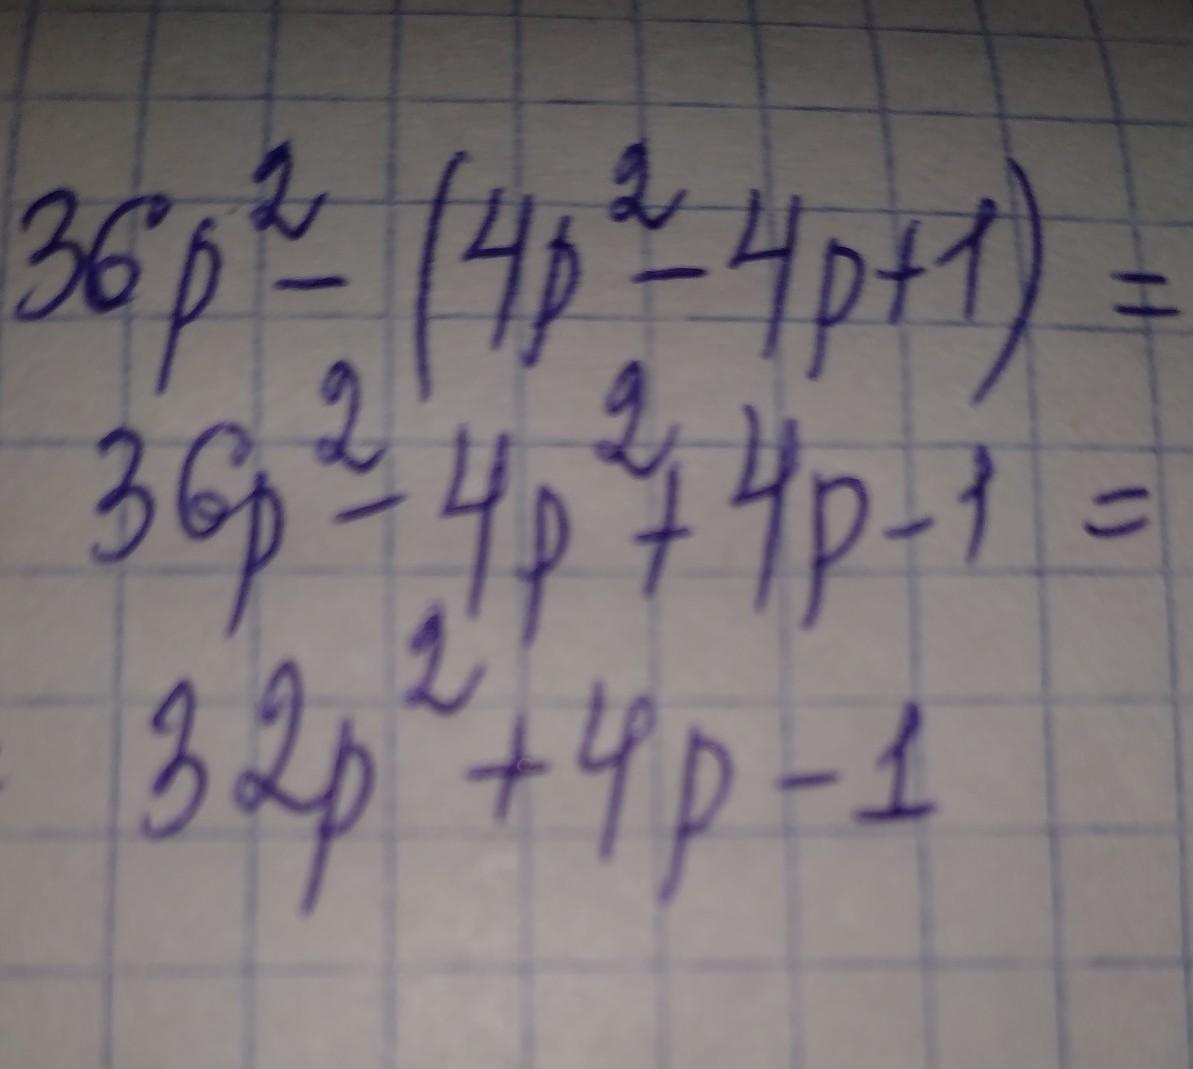 36p² - (4p² - 4p + 1) =
36p² - 4p² + 4p - 1 =
32p² + 4p - 1